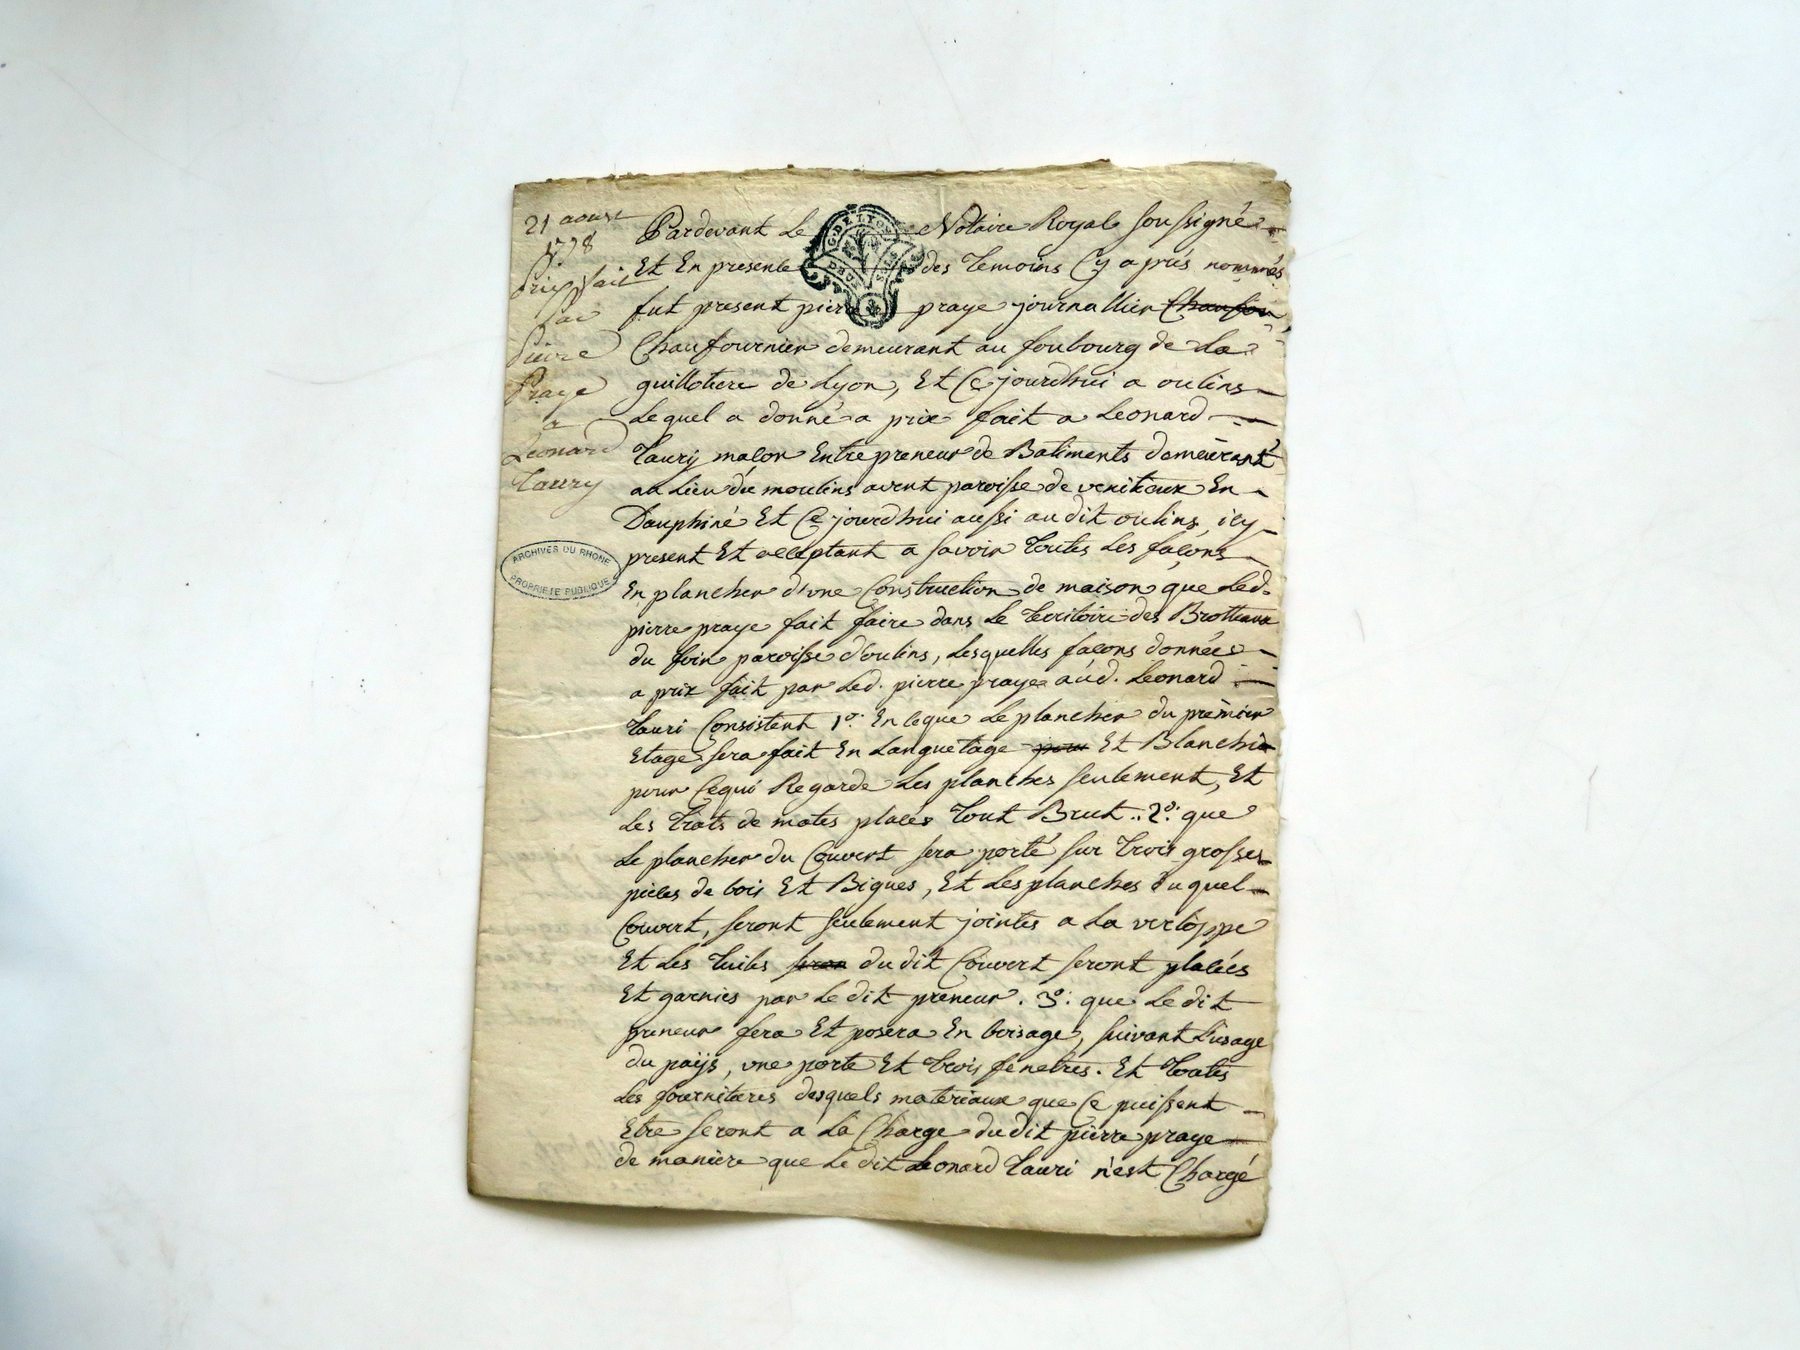 21 aoust
1778
prix fait
par
Pierre
Praye
a
Leonard
Taury
ARCHIVES DU RHONE
PROPRIETE PUBLIQUE
G. DE LYON
Pardevant Le Notaire Royal soussigné
Et En presence des temoins Cy aprés nommés
fut present pierre praye journallier Chaufou
Chaufournier demeurant au foubourg de La
guillotiere de Lyon, Et Cejourdhui a oulins
Lequel a donné a prix fait a Leonard
Taury masson Entrepreneur de Batiments demeurant
au Lieu du moulins avent paroisse de venitieux En
Dauphiné Et Cejourdhui aussi au dit oulins, icy
present Et acceptant a savoir toutes Les façons
En plancher d'une Construction de maison que Led.
pierre praye fait faire dans Le territoire des Brotteaux
du foin paroisse d'oulins, Lesquelles façons données
a prix fait par Led. pierre praye aud. Leonard
Tauri Consistent 1º. En ceque Le plancher du premier
Etage sera fait En Languetage pour Et Blanchir
pour Cequi Regarde Les planches seulement, Et
Les trats de mates placés tout Brut. 2º. que
Le plancher du Couvert sera porté sur trois grosses
pieces de bois Et Bigues, Et Les planches duquel
Couvert, seront seulement jointes a La verloppe
Et Les tuiles seron du dit Couvert seront placées
Et garnies par Le dit preneur. 3º. que Le dit
preneur fera Et posera En boisage, suivant L'usage
du païs, une porte Et trois fenetres. Et toutes
Les fournitures desquels materiaux que Ce puissent
Etre seront a La Charge du dit pierre praye
de manière que Le dit Leonard Tauri n'est Chargé